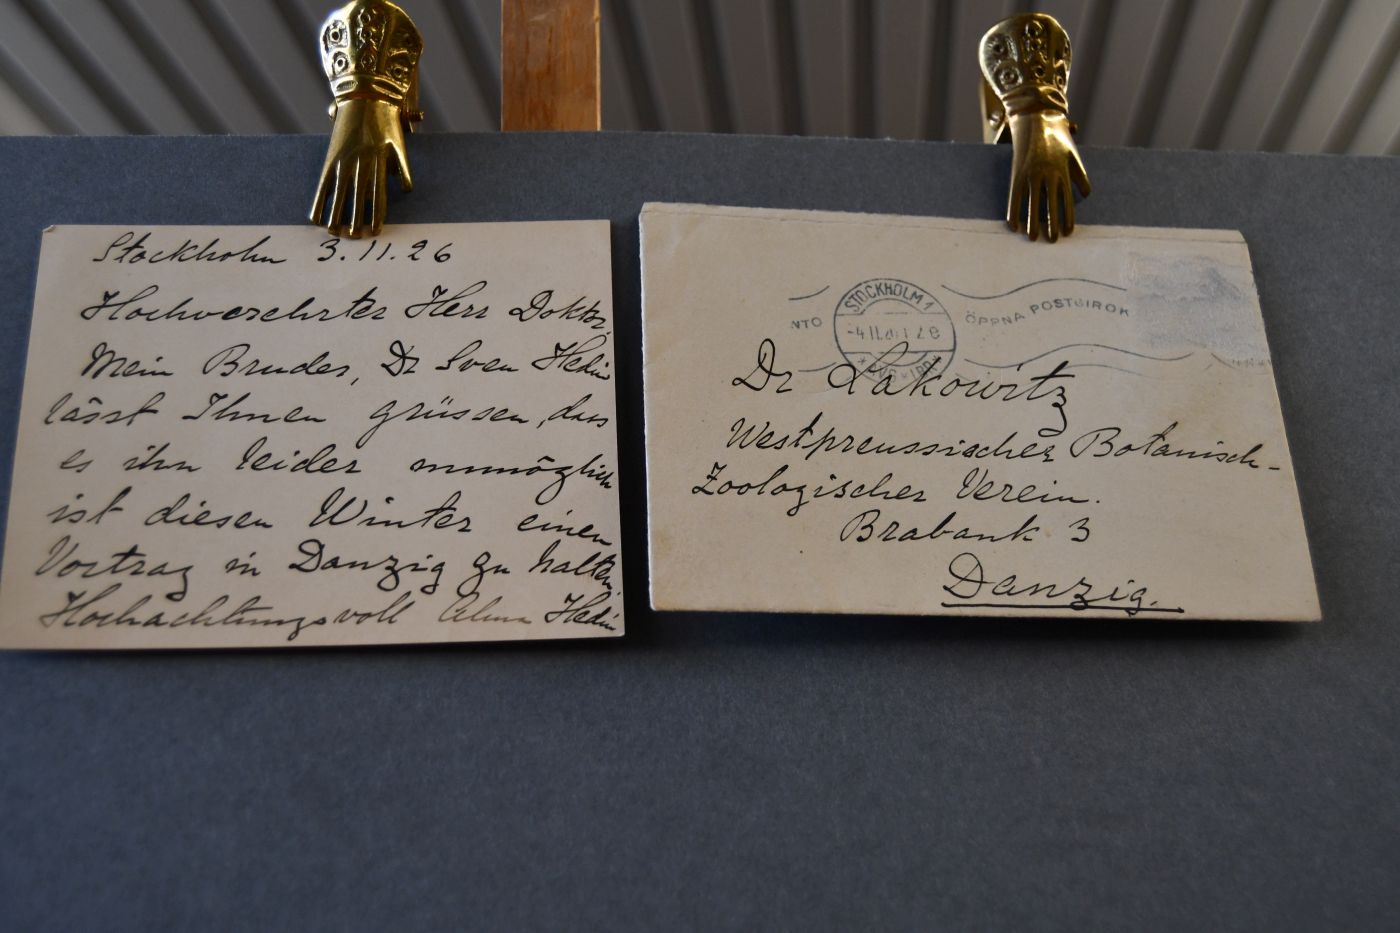 Stockholm 3.11.26
Hochverehrter Herr Doktor,
Mein Bruder, Dr Sven Hedin
lässt Ihnen grüssen, dass
es ihm leider unmöglich
ist diesen Winter einen
Vortrag in Danzig zu halten.
Hochachtungsvoll Alma Hedin
NTO
STOCKHOLM 1
-4.11.26
ÖPPNA POSTGIROK
Dr Lakowitz
Westpreussischer Botanisch-
Zoologischer Verein.
Brabank 3
Danzig.